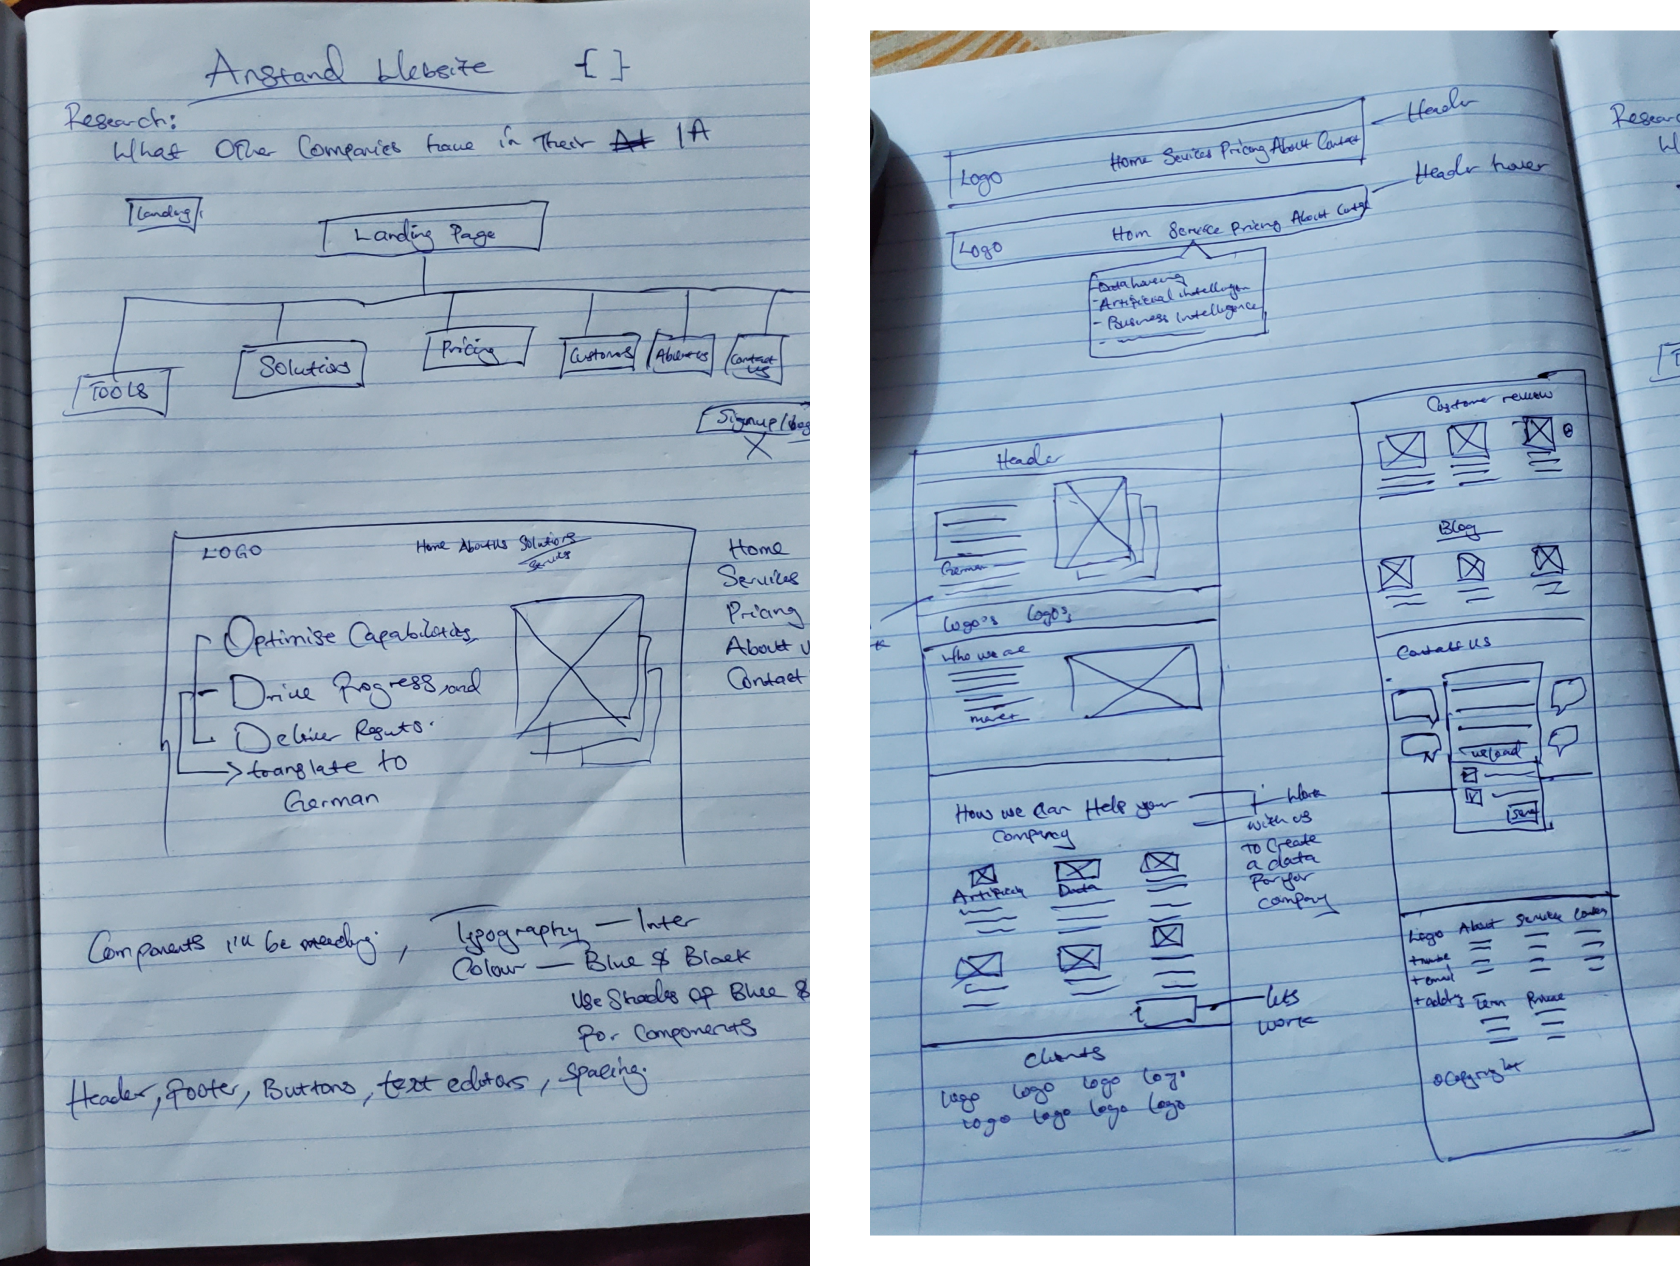 Anstand Website { }
Research:
What Other Companies have in Their IA
Landing
Landing Page
TOOLS
Solutions
Pricing
Customers
About us
Contact us
Signup/
LOGO
Home About Us Solutions
Services
Optimise Capabilities
Drive Progress and
Deliver Results.
translate to
German
Home
Services
Pricing
About u
Contact
Components i'll be needing, Typography — Inter
Colour — Blue & Black
Use Shades of Blue &
for Components
Header, Footer, Buttons, text editors, spacing.
Header
Logo
Home Sevices Pricing About Contact
Header hover
Logo
Hom Service Pricing About
- Business Intelligence
Header
German
Logo's Logo's
Who we are
How we can Help your
Company
Work
with us
TO Create
a data
for your
company
Data
Lets
work
Clients
Logo Logo Logo Logo
Logo Logo Logo Logo
Customer review
Blog
Contact Us
upload
Send
Logo About Service
+ name
+ email
+ address
Term
©Copyright
Research